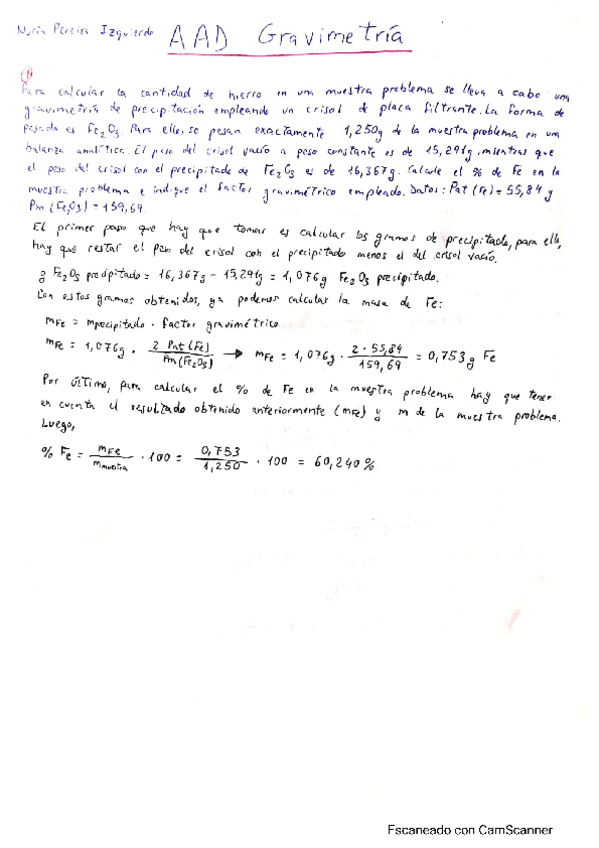 Nuria Pereira Izquierdo AAD Gravimetría
①
Para calcular la cantidad de hierro en una muestra problema se lleva a cabo una
gravimetría de precipitación empleando un crisol de placa filtrante. La forma de
pesada es Fe₂O₃. Para ello, se pesan exactamente 1,250g de la muestra problema en una
balanza analítica. El peso del crisol vacío a peso constante es de 15,291g, mientras que
el peso del crisol con el precipitado de Fe₂O₃ es de 16,367g. Calcule el % de Fe en la
muestra problema e indique el factor gravimétrico empleado. Datos: Pat (Fe) = 55,84 y
Pm (Fe₂O₃) = 159,69.
El primer paso que hay que tomar es calcular los gramos de precipitado, para ello,
hay que restar el peso del crisol con el precipitado menos el del crisol vacío.
g Fe₂O₃ precipitado = 16,367g - 15,291g = 1,076g Fe₂O₃ precipitado.
Con estos gramos obtenidos, ya podemos calcular la masa de Fe:
mFe = mprecipitado · factor gravimétrico
mFe = 1,076g · 2 Pat (Fe) / Pm (Fe₂O₃) → mFe = 1,076g · 2 · 55,84 / 159,69 = 0,753g Fe
Por último, para calcular el % de Fe en la muestra problema hay que tener
en cuenta el resultado obtenido anteriormente (mFe) y m de la muestra problema.
Luego,
% Fe = mFe / mmuestra · 100 = 0,753 / 1,250 · 100 = 60,240 %
Escaneado con CamScanner